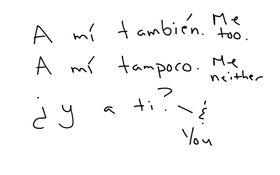 A mí también. Me too.
A mí tampoco. Me neither
¿y a ti? \ &
You